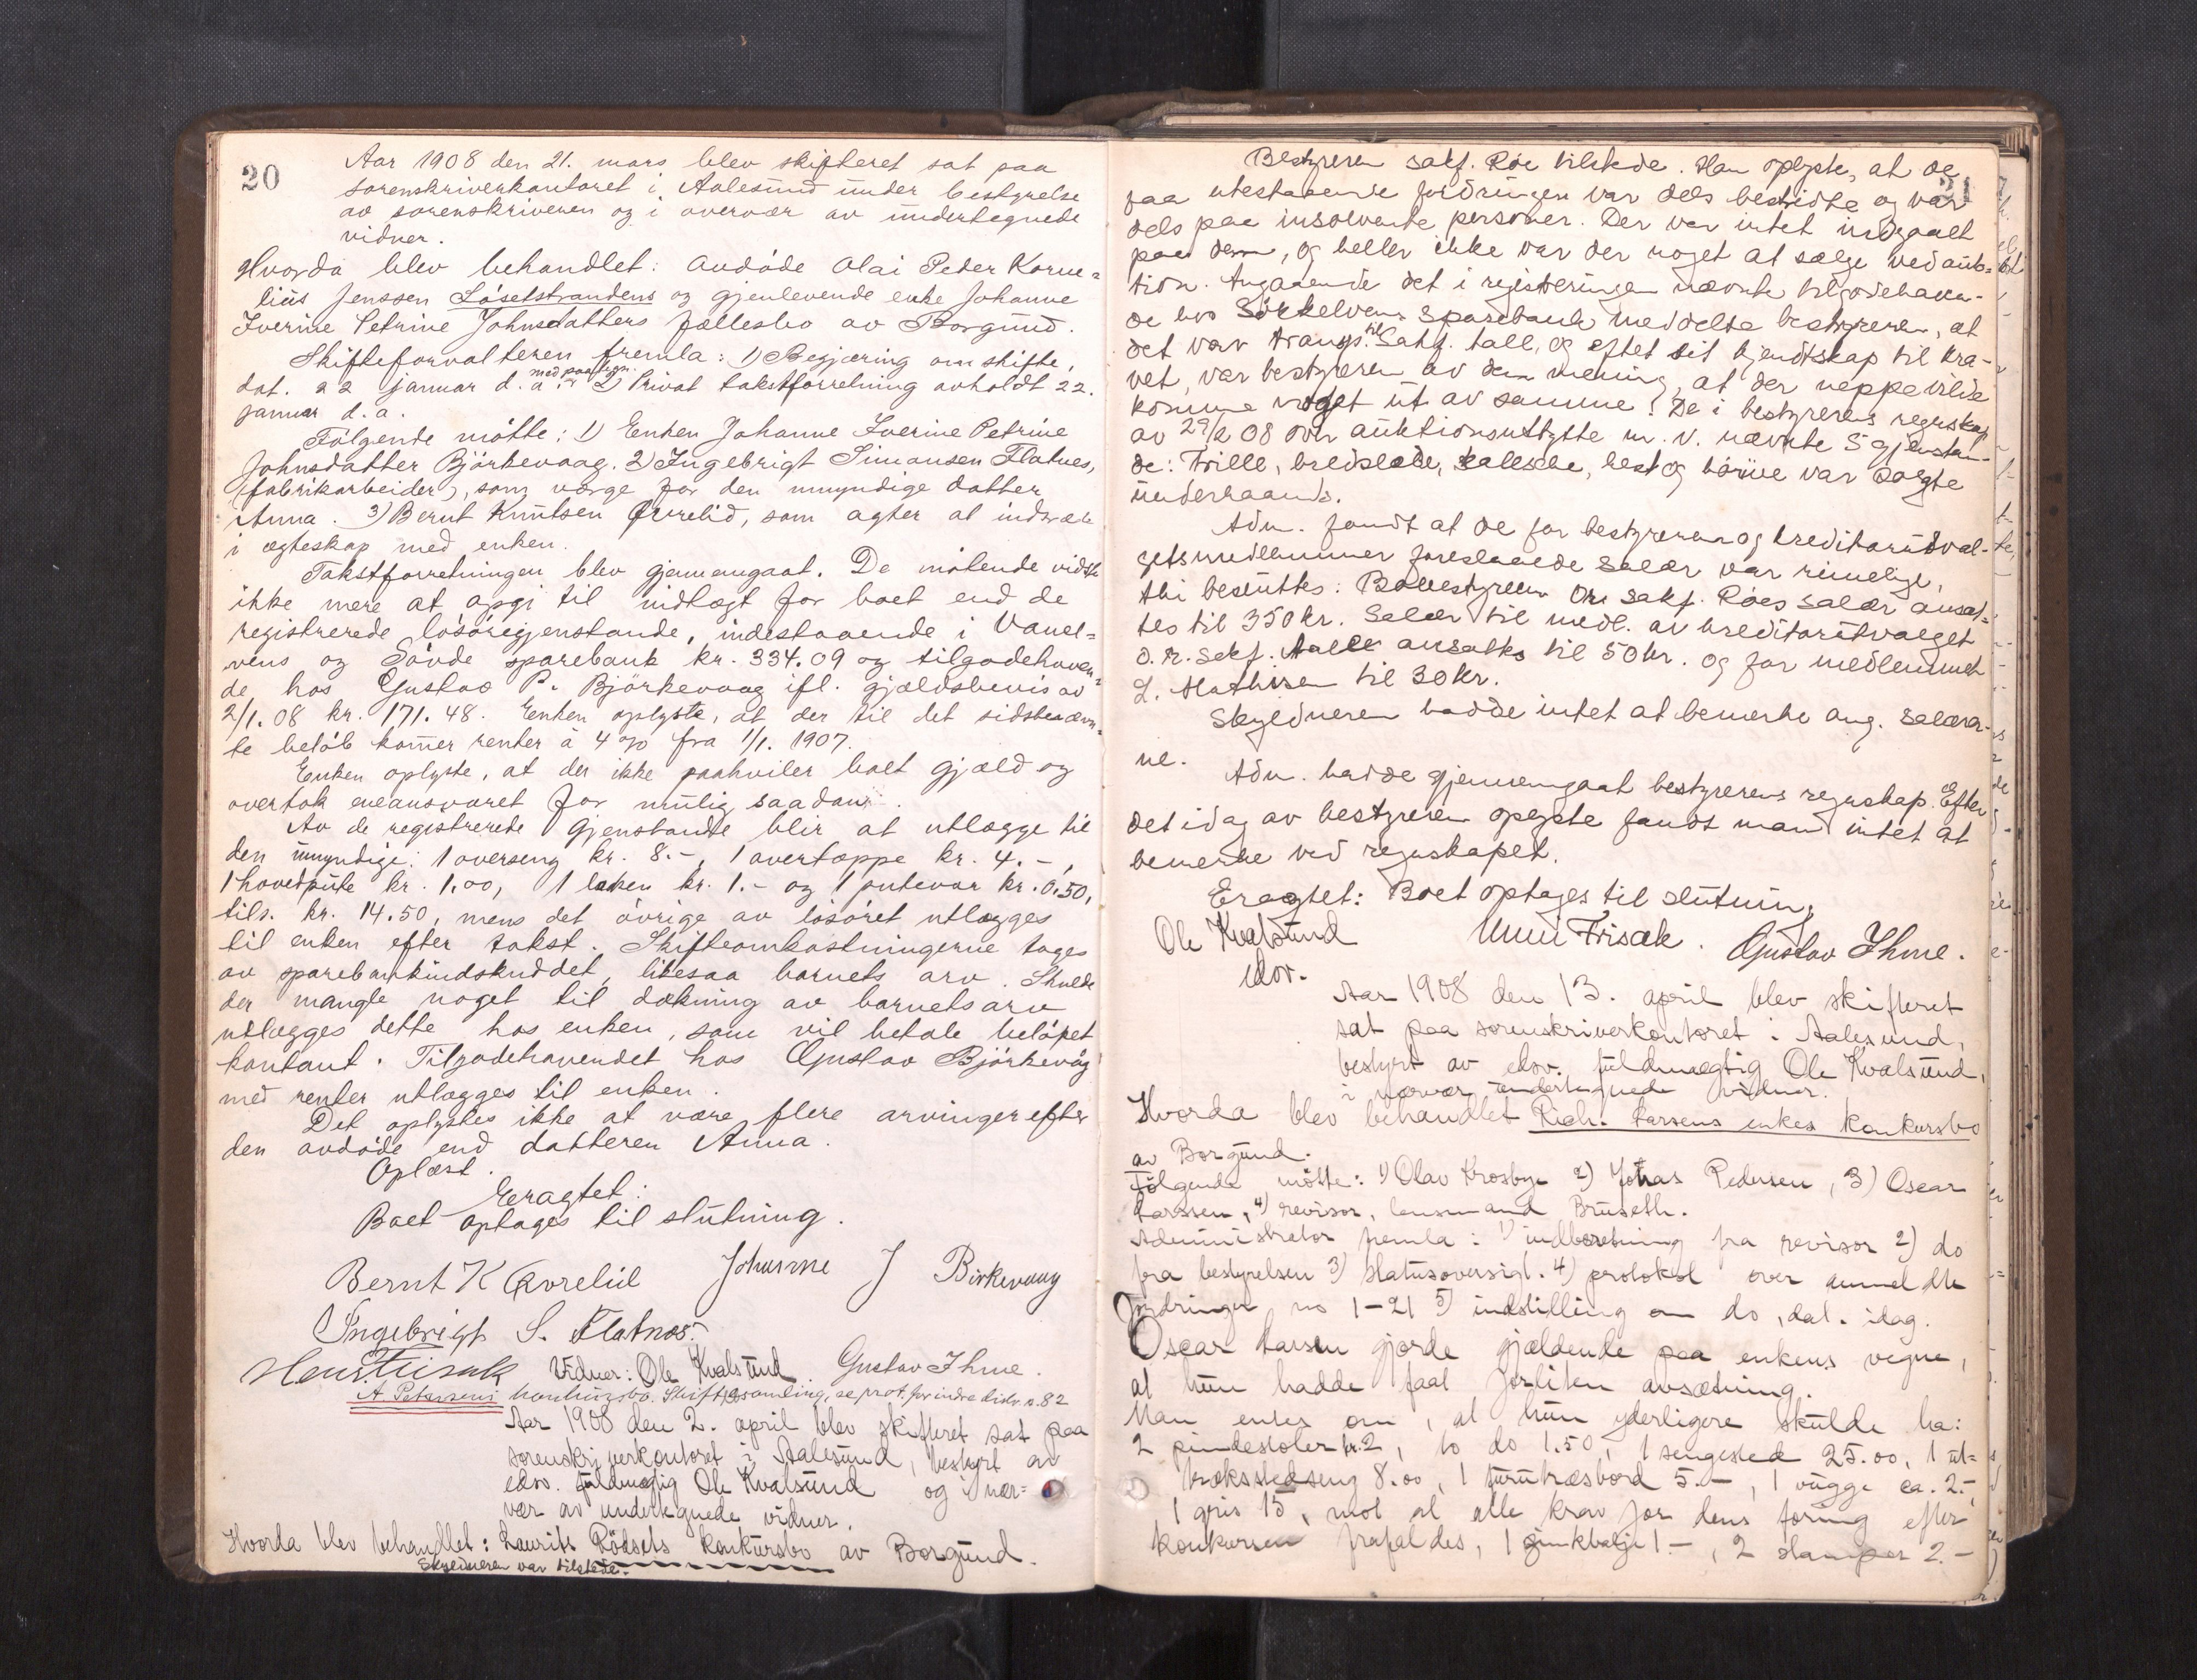 20
Aar 1908 den 21. mars blev skifteret sat paa
sorenskriverkontoret i Aalesund under bestyrelse
av sorenskriveren og i overvær av undertegnede
vidner.
Hvorda blev behandlet: avdöde Olai Peder Korne=
lius Jenssen Löselstrandens og gjenlevende enke Johanne
Iverine Petrine Johnsdatters fællesbo av Borgund.
Skifteforvalteren fremla: 1) Begjæring om skifte,
dat. 22 januar d. a. med paategn. 2) Privat takstforretning avholdt 22.
januar d. a.
Fölgende mötte: 1) Enken Johanne Iverine Petrine
Johnsdatter Björkevaag. 2) Ingebrigt Simonsen Flatnes,
(fabrikarbeider), som værge for den umyndige datter
Anna. 3) Bernt Knutsen Qvrelid, som agter at indtræde
i egteskap med enken.
Takstforretningen blev gjennemgaat. De mötende vidste
ikke mere at opgi til indtægt for boet end de
registrerede lösöregjenstande, indestaaende i Vanel=
vens og Søvde sparebank kr. 334.09 og tilgodehaven=
de hos Gustav P. Björkevaag ifl. gjældsbevis av
2/1. 08 kr. 171.48. Enken oplyste, at der til det sidstnævn=
te belöb kommer renter à 4 % fra 1/1. 1907.
Enken oplyste, at der ikke paahviler boet gjæld og
overtok eneansvaret for mulig saadan.
Av de registrerede gjenstande blir at utlægge til
den umyndige: 1 overseng kr. 8.-, 1 overtæppe kr. 4.-,
1 hovedpute kr. 1.00, 1 laken kr. 1.- og 1 putevar kr. 0.50,
tils. kr. 14.50, mens det övrige av lösöret utlægges
til enken efter takst. Skifteomkostningerne tages
av sparebankindskuddet, likesaa barnets arv. Skulde
der mangle noget til dækning av barnets arv
utlægges dette hos enken, som vil betale belöpet
kontant. Tilgodehavendet hos Gustav Björkevåg
med renter utlægges til enken.
Det oplystes ikke at være flere arvinger efter
den avdöde end datteren Anna.
Oplæst.
Eragtet:
Boet optages til slutning.
Bernt K Qvrelid Johanne J Birkevaag
Ingebrigt S. Flatnes
Vidner: Ole Kvalsund. Gustav Ihme.
A. Petersens konkursbo. Skiftesamling, se prot. for indre distr. s. 82
Aar 1908 den 2. april blev skifteret sat paa
sorenskriverkontoret i Aalesund, bestyrt av
edsv. fuldmægtig Ole Kvalsund og i nær=
vær av undertegnede vidner.
Hvorda blev behandlet: Laurits Rödsets konkursbo av Borgund.
Skyldneren var tilstede.
Bestyreren sakf. Röe tilstede. Han oplyste, at de
paa utestaaende fordringer var dels bestridte og var
dels paa insolvente personer. Der var intet indgaalt
paa dem, og heller ikke var der noget at sælge ved auk-
tion. Angaaende det i registeringen nævnte tilgodehaven-
de hos Sökkelvens sparebank meddelte bestyreren, at
det var transp. til Sakf. Aall, og eftet sit kjendtskap til kra-
vet, var bestyreren av den mening, at der neppe vilde
komme noget ut av samme. De i bestyrerens regnskap
av 29/2 08 over auktionsutbytte nr. V. nævnte 5 gjenstan-
de: Trille, bredslæde, kalesche, hest og hörive var solgte
underhaands.
Adm. fandt at de for bestyreren og kreditorutval-
getsmedlemmer foreslaaede salær var rimelige,
thi besluttes: Bobestyreren Orr sakf. Röes salær ansæt-
tes til 350 kr. Salær til medl. av kreditorutvalget
o. r. sakf. Aall ansættes til 50 kr. og for medlemmet
L. Mathisen til 30 kr.
Skyldneren hadde intet at bemerke ang. salærer-
ne.
Adm. hadde gjennemgaat bestyrerens regnskap. Efter
det idag av bestyreren oplyste fandt man intet at
bemerke ved regnskapet.
Eragtet: Boet optages til slutning
Ole Kvalsund Unni Frisak. Gustav Ihme.
edsv.
Aar 1908 den 13. april blev skifteret
sat paa sorenskriverkontoret i Aalesund,
bestyrt av edsv. fuldmægtig Ole Kvalsund,
i nærvær undertegnede vidner.
Hvorda blev behandlet Rich. Larsens enkes konkursbo
av Borgund.
Fölgende mötte: 1) Olav Krosbye 2) Jonas Pedersen, 3) Oscar
Larssen, 4) revisor, lensmand Bruseth.
Administrator fremla: 1) indberetning fra revisor 2) do
fra bestyrelsen 3) statusoversigt. 4) protokol over anmeldte
fordringer no 1-21 5) indstilling om do, dat. idag.
Oscar Larsen gjorde gjældende paa enkens vegne,
at hun hadde faat forliten avsætning.
Man enes om, at hun yderligere skulde ha:
2 pindestoler kr. 2, to do 1.50, 1 sengested 25.00, 1 ut=
trækssledseng 8.00, 1 furutræsbord 5.-, 1 vugge ca. 2.-,
1 gris 15, mot at alle krav for dens foring efter
konkursen frafaldes, 1 zinkbalje 1.-, 2 stamper 2.-